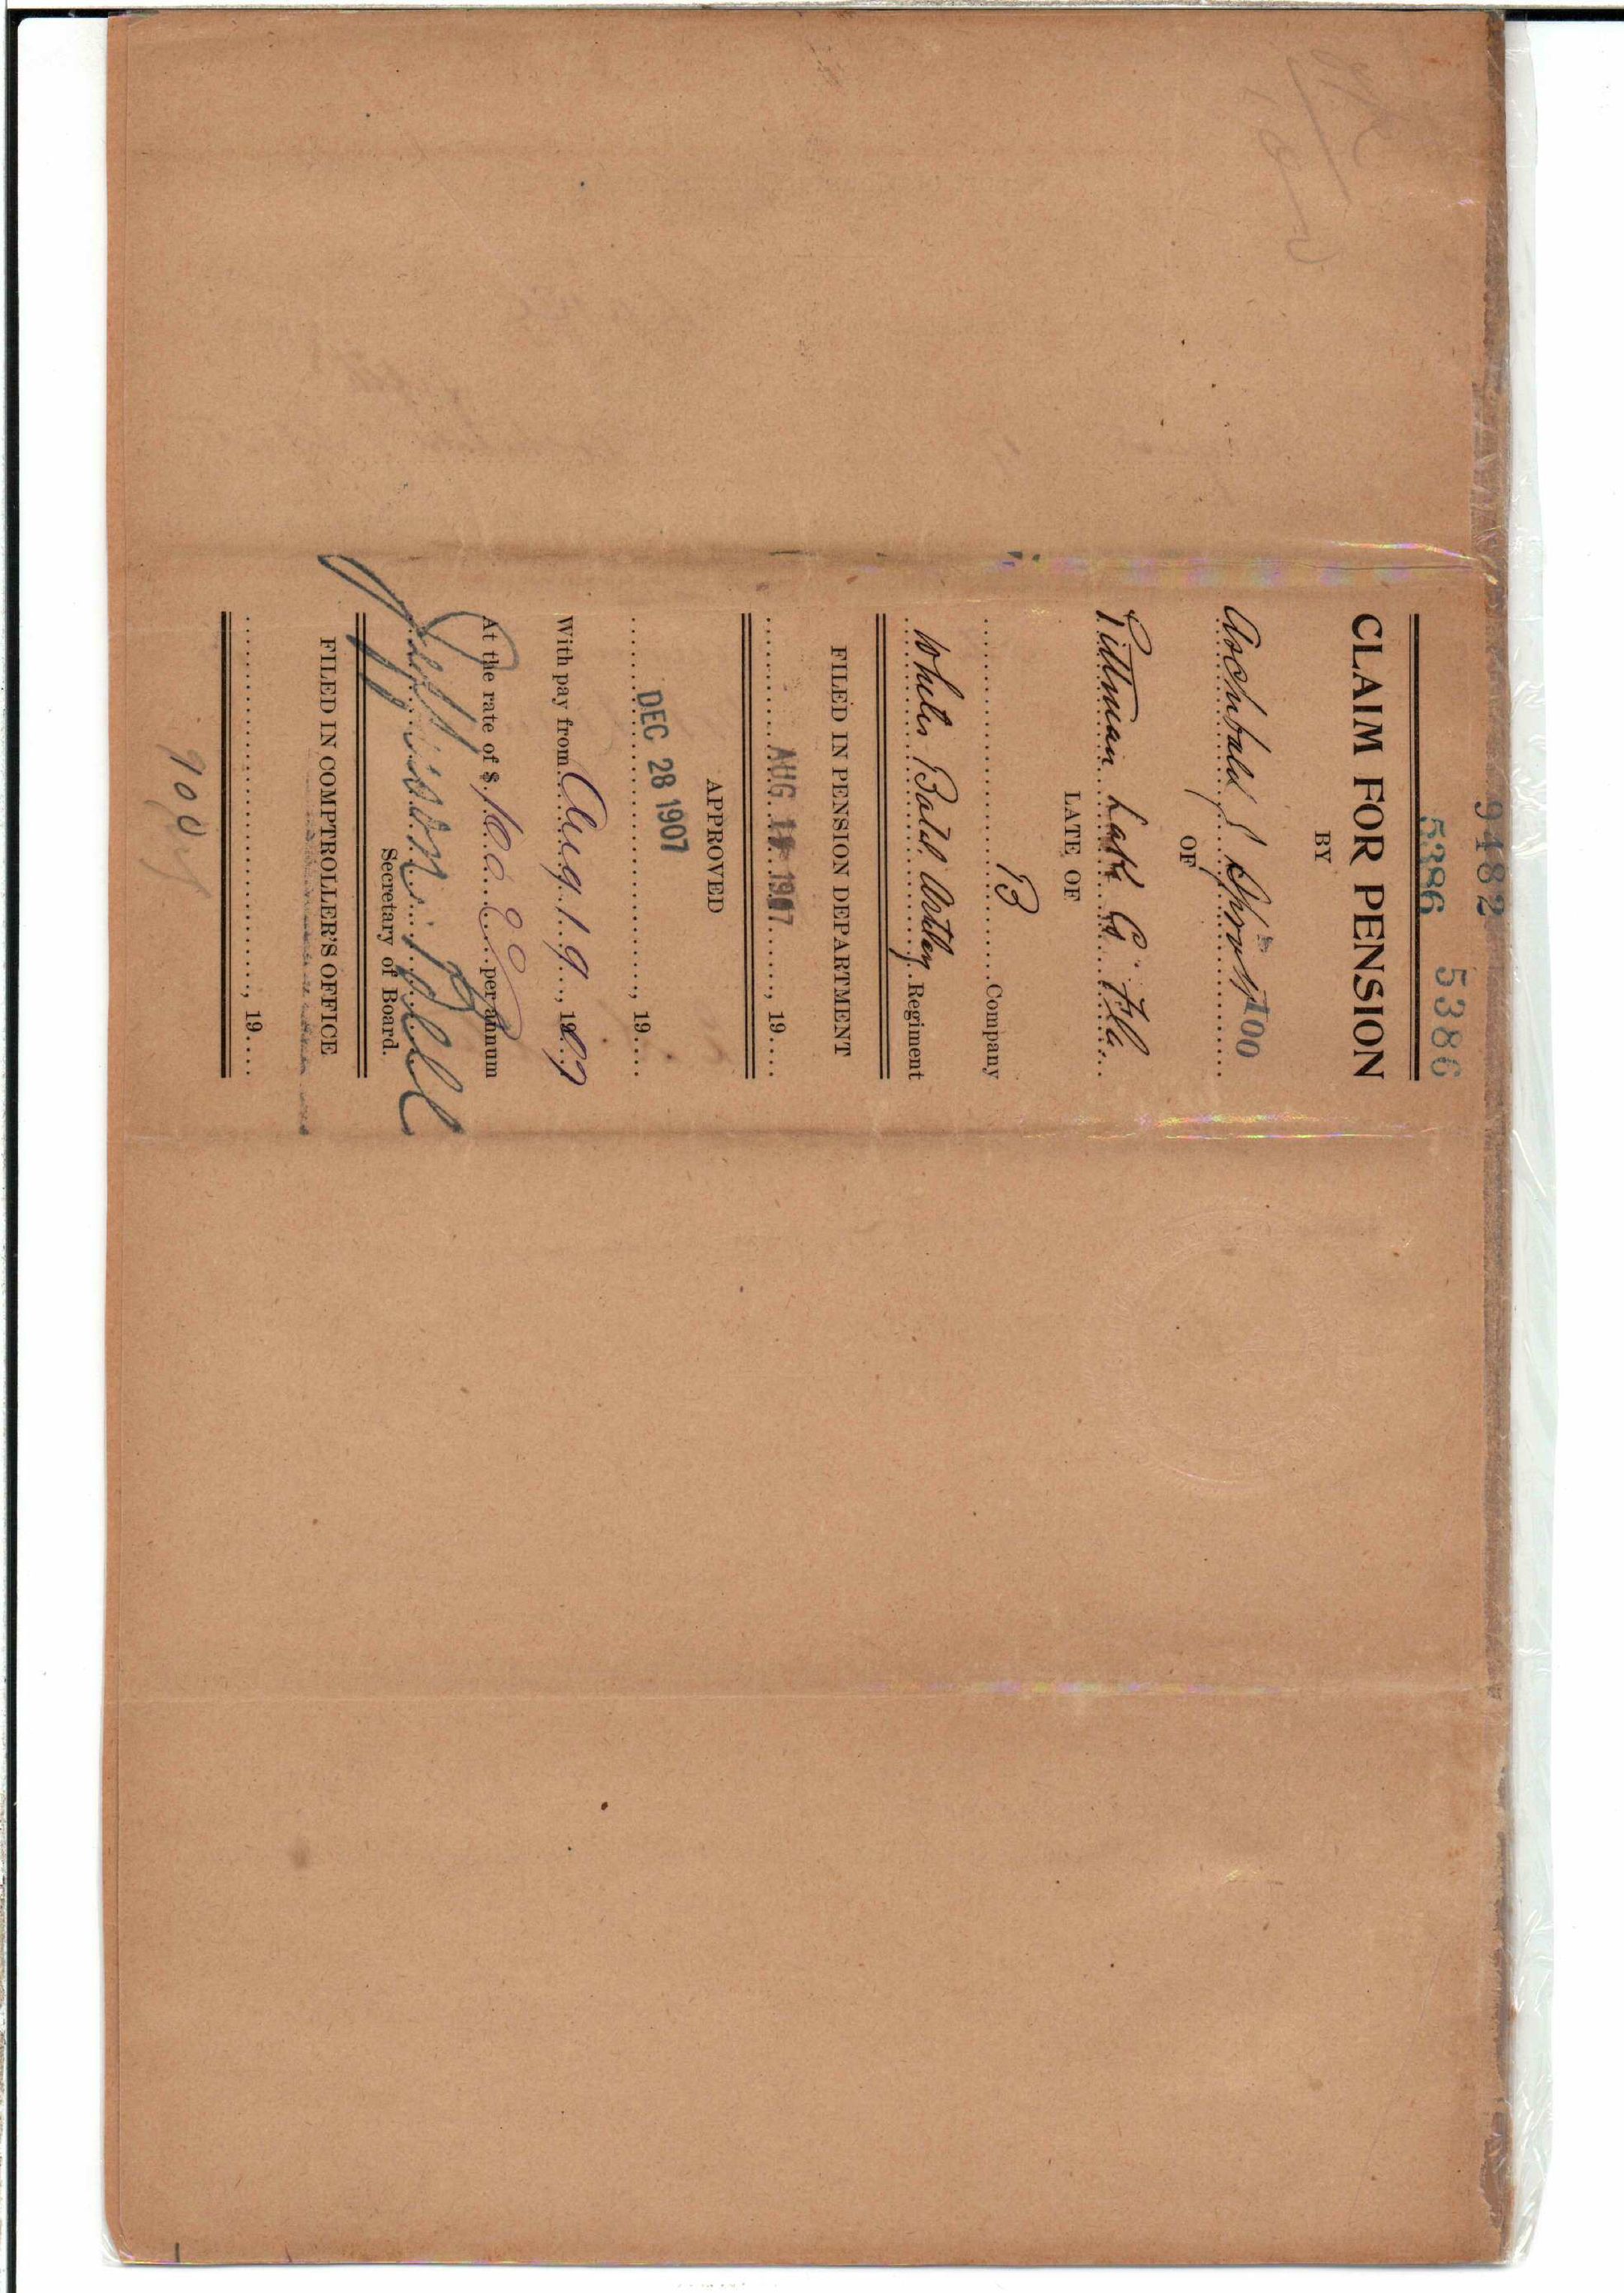 9482
5386 5386
CLAIM FOR PENSION
BY
Archibald J 100
OF
Pittman Lake Co. Fla.
LATE OF
B Company
Whites Batt. Artlry Regiment
FILED IN PENSION DEPARTMENT
AUG 19 1907, 19
APPROVED
DEC 28 1907, 19
With pay from Aug. 19, 1907
At the rate of $ 100 per annum
Jefferson B. Bell
Secretary of Board.
FILED IN COMPTROLLER'S OFFICE
, 19